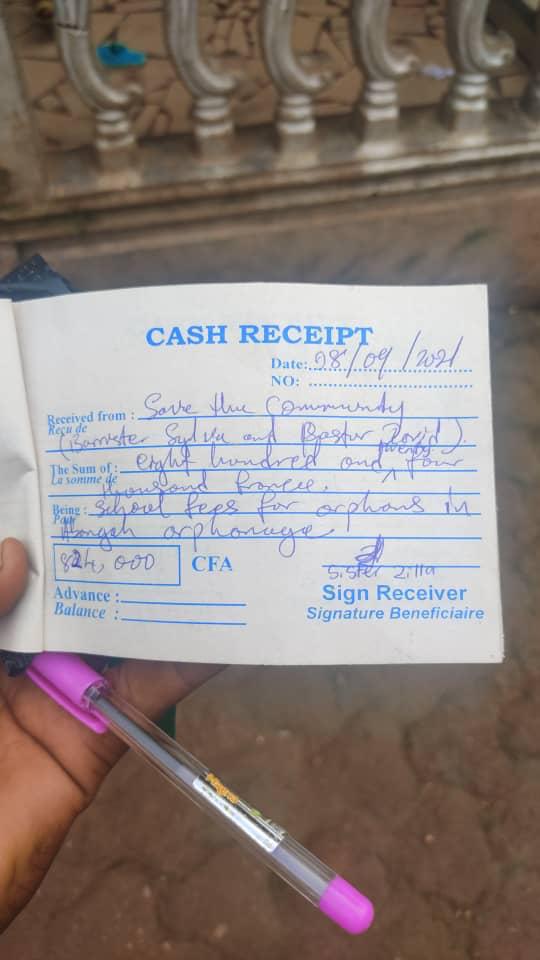 CASH RECEIPT
Date: 28/09/2021
NO:
Received from : Save the Community
Reçu de
(Barrister Sylvia and Pastor David).
The Sum of : eight hundred and twenty four
La somme de
thousand francs.
Being : School fees for orphans in
Pour
Abongah orphanage
824,000 CFA
Sister Zilla
Sign Receiver
Signature Beneficiaire
Advance :
Balance :